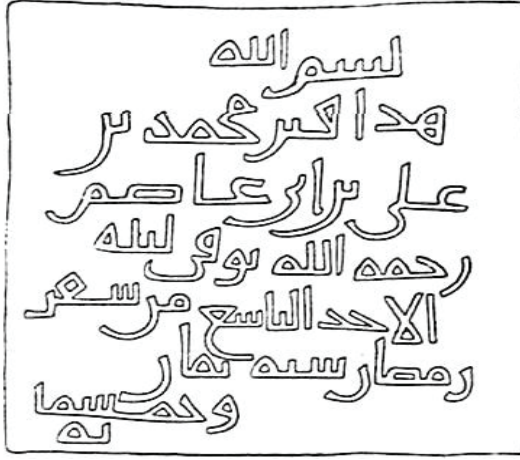 بسم الله
هذا قبر محمد بن
علي بن ابي عاصم
رحمه الله توفي ليلة
الاحد التاسع من شهر
رمضان سنة ثمان
وخمسما
ية